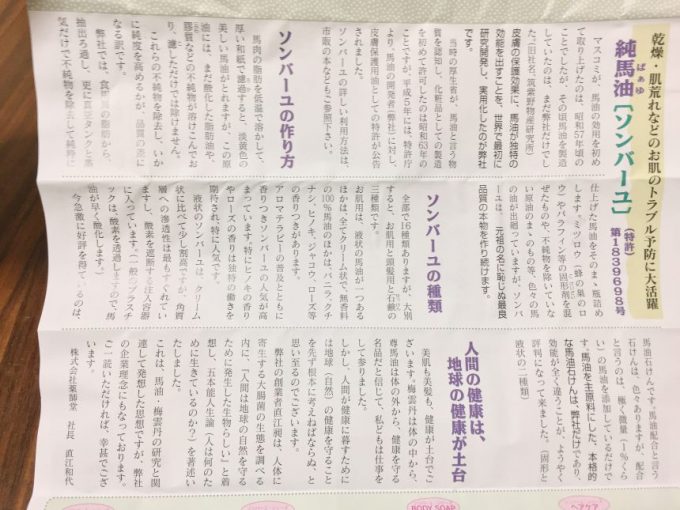 乾燥・肌荒れなどのお肌のトラブル予防に大活躍
ばぁゆ
純馬油［ソンバーユ］
（特許）
第1839698号
マスコミが、馬油の効用を初め
て取り上げたのは、昭和57年頃の
ことでしたが、その頃馬油を製造
していたのは、まだ弊社だけでし
た。（旧社名、筑紫野物産研究所）
皮膚の保護効果に、馬油が独特の
効能を出すことを、世界で最初に
研究開発し、実用化したのが弊社
です。
当時の厚生省が、馬油と言う物
質を認知し、化粧品としての製造
を初めて許可したのは昭和63年の
ことですが、平成5年には、特許庁
より、馬油の開発者（弊社）に対し、
皮膚保護用油としての特許が公告
されました。
ソンバーユの詳しい利用方法は、
市販の本などもご参照下さい。
ソンバーユの作り方
馬肉の脂肪を低温で溶かして、
厚い和紙で濾過すると、淡黄色の
美しい馬油がとれますが、この原
油には、まだ酸化した脂肪酸や、
膠質などの不純物が溶けこんでお
り、濾しただけでは除けません。
これらの不純物を除去し、いか
に純度を高めるかが、品質の差に
なる訳です。
弊社では、食用馬の脂肪から、
抽出ろ過し、更に真空タンクと蒸
気だけで不純物を除去して純粋に
仕上げた馬油をそのまゝ瓶詰め
します。ミツロウ（蜂の巣のロ
ウ）やパラフィン等の固形剤を混
ぜたものや、不純物を除いていな
い原油のまゝのもの等、色々の馬
の油が出廻っていますが、ソンバ
ーユは、元祖の名に恥じぬ最良
品質の本物を作り続けます。
ソンバーユの種類
全部で16種類ありますが、大別
すると、お肌用と頭髪用と石鹸の
三種類です。
お肌用は、液状の馬油が一つある
ほかは、全てクリーム状で、無香料
の100％馬油のほかは、バニラ、クチ
ナシ、ヒノキ、ジャコウ、ローズ等
の香りつきがあります。
アロマテラピーの普及とともに
香りつきソンバーユの人気が高
まっています。特にヒノキの香り
やローズの香りは独特の働きを
期待され、特に人気です。
液状のソンバーユは、クリーム
状に比べて少し割高ですが、角質
層への滲透性は最もすぐれてい
ますし、酸素を遮断する注入容器
に入っています。（一般のプラスチ
ックは、酸素を透過しますので、馬
油が早く酸化します。）
今急激に好評を得ているのは、
馬油石けんです。馬油配合と言う
石けんは、色々ありますが、配合
と言うのは、極く微量（1％くら
い）の馬油を添加しているだけで
す。馬油を主原料にした、本格的
な馬油石けんは、弊社だけであり、
効能が全く違うことが、ようやく
評判になって来ました。（固形と
液状の二種類）
人間の健康は、
地球の健康が土台
美肌も美髪も、健康が土台でご
ざいます。梅雲丹は体の中から、
尊馬油は体の外から、健康を守る
名品だと信じて、私どもは仕事を
して参りました。
しかし、人間が健康に暮すために
は地球（自然）の健康を守ること
を先ず根本に考えねばならぬ、と
思い至るのでございます。
弊社の創業者直江昶は、人体に
寄生する大腸菌の生態を調べる
内に、「人間は地球の自然を守る
ために発生した生物らしい」と着
想し、五本能人生論（人は何のた
めに生きているのか？）を著述い
たしました。
これは、馬油・梅雲丹の研究と関
連して発想した思想ですが、弊社
の企業理念にもなっております。
ご一読いただければ、幸甚でござ
います。
株式会社薬師堂　社長　直江和代
BODY SOAP
ヘアケア